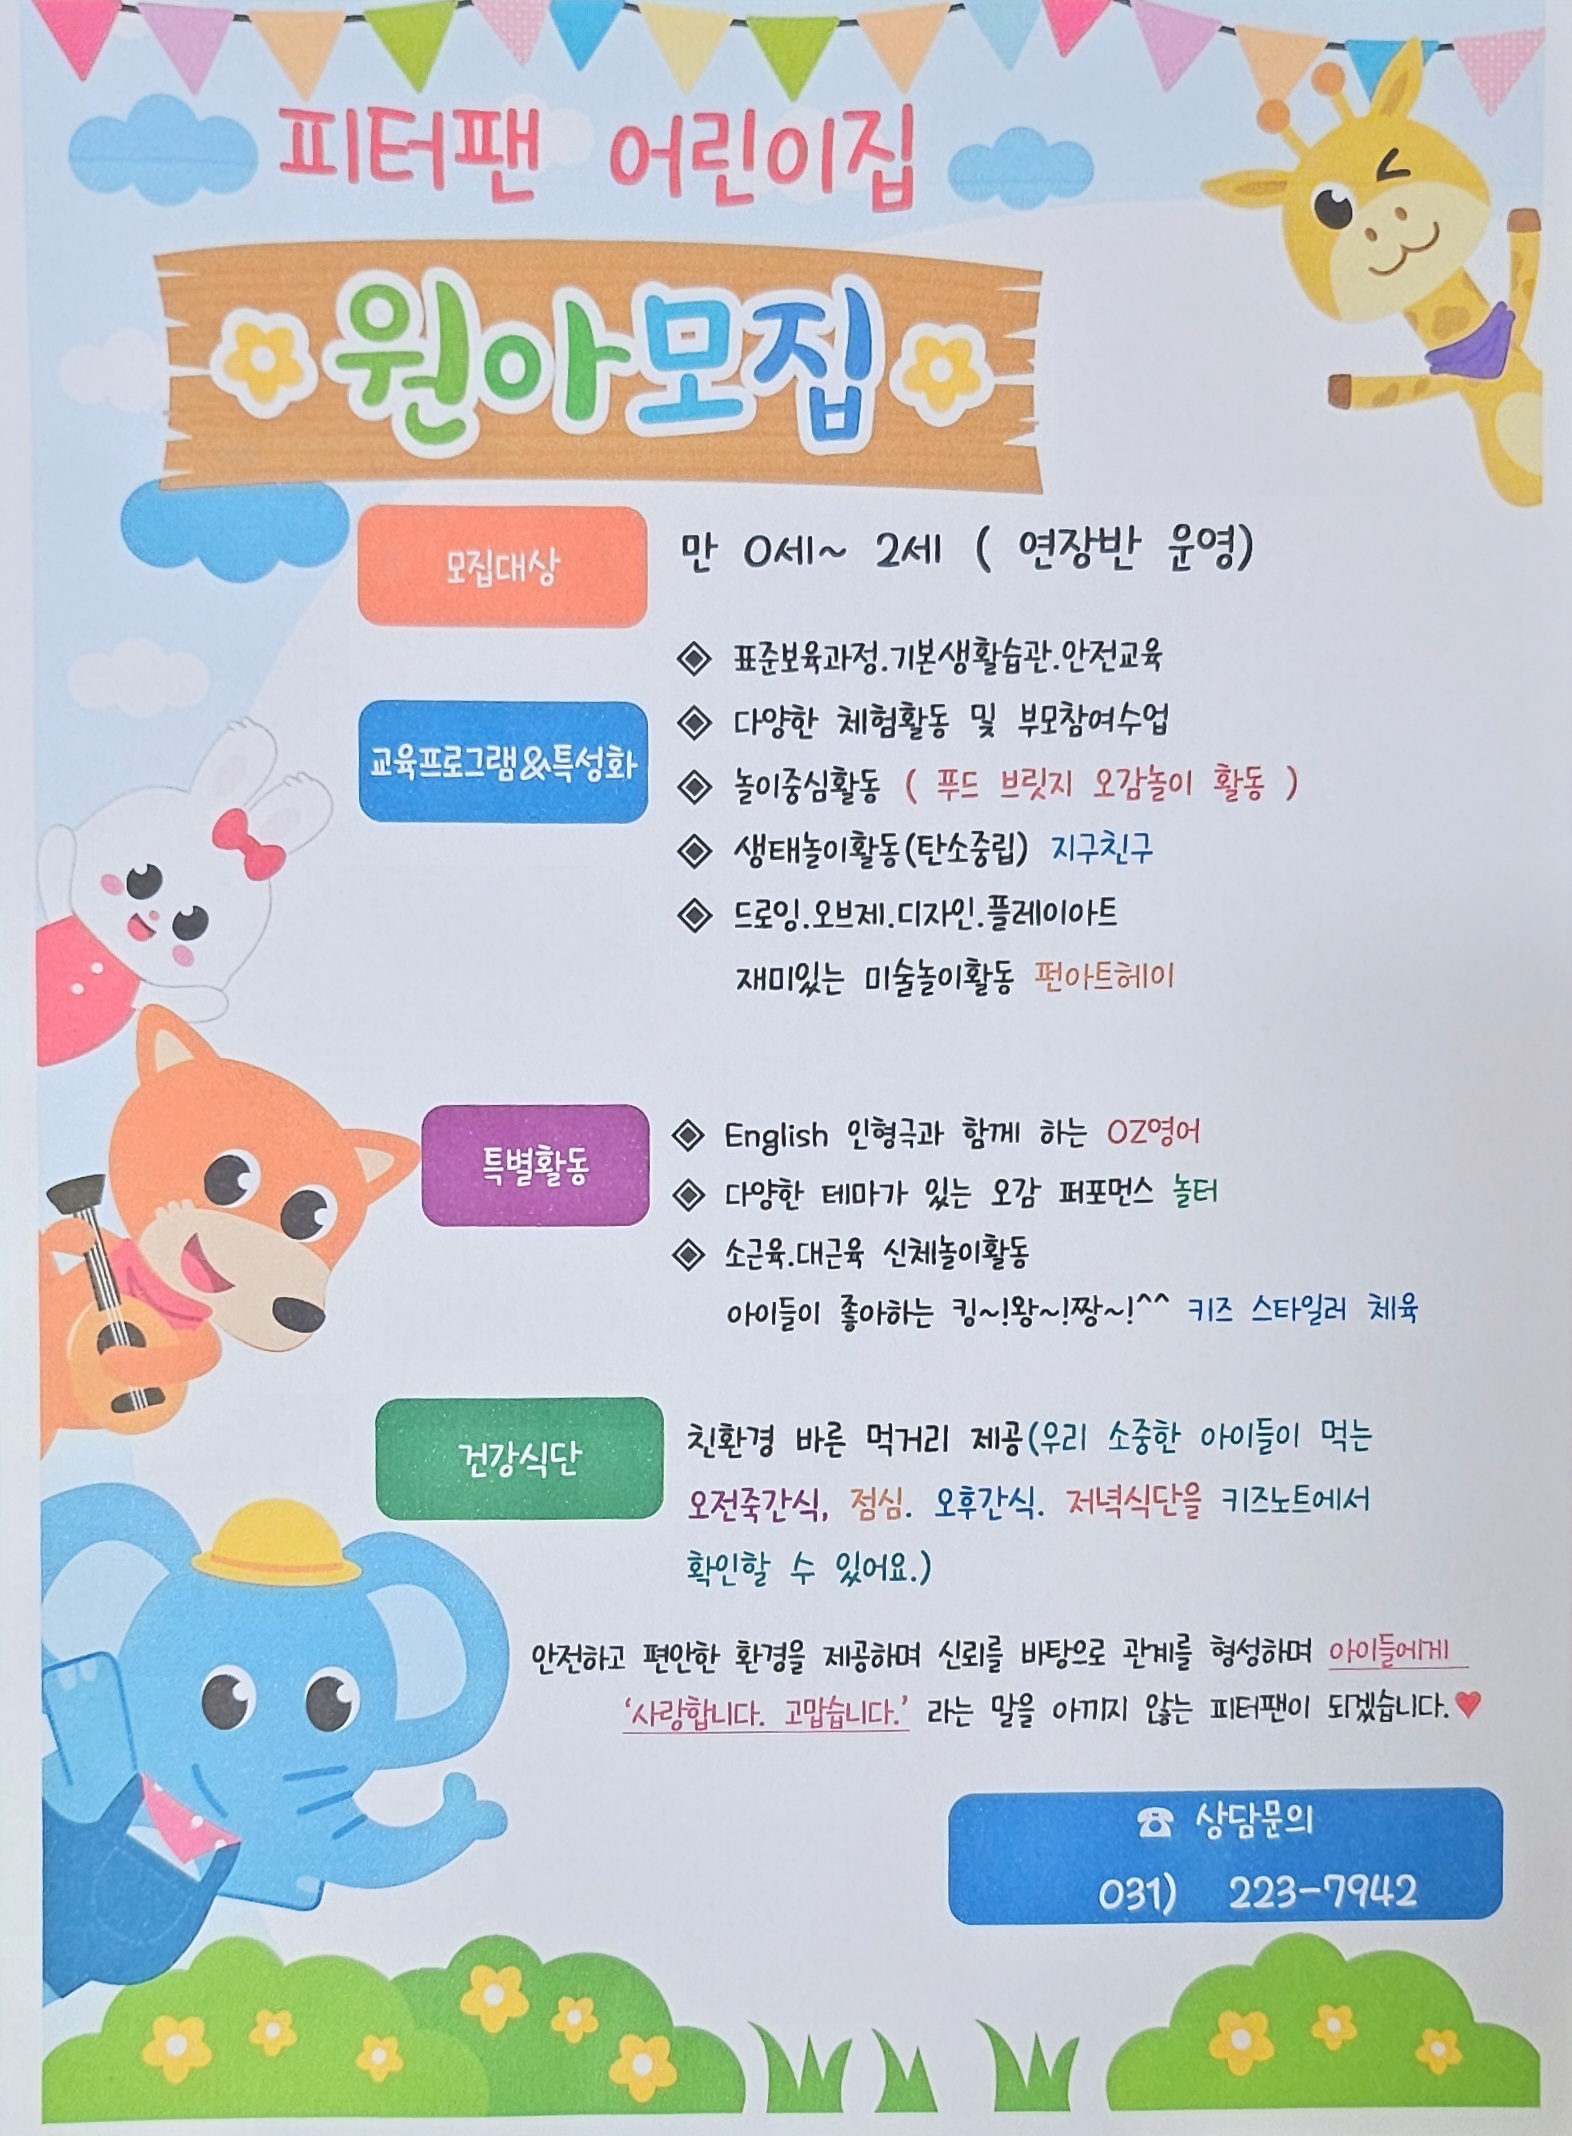 피터팬 어린이집
원아모집
모집대상
만 0세~ 2세 ( 연장반 운영)
교육프로그램&특성화
◈ 표준보육과정.기본생활습관.안전교육
◈ 다양한 체험활동 및 부모참여수업
◈ 놀이중심활동 ( 푸드 브릿지 오감놀이 활동 )
◈ 생태놀이활동(탄소중립) 지구친구
◈ 드로잉.오브제.디자인.플레이아트
재미있는 미술놀이활동 펀아트헤이
특별활동
◈ English 인형극과 함께 하는 OZ영어
◈ 다양한 테마가 있는 오감 퍼포먼스 놀터
◈ 소근육.대근육 신체놀이활동
아이들이 좋아하는 킹~!왕~!짱~!^^ 키즈 스타일러 체육
건강식단
친환경 바른 먹거리 제공(우리 소중한 아이들이 먹는
오전죽간식, 점심. 오후간식. 저녁식단을 키즈노트에서
확인할 수 있어요.)
안전하고 편안한 환경을 제공하며 신뢰를 바탕으로 관계를 형성하며 아이들에게
‘사랑합니다. 고맙습니다.’ 라는 말을 아끼지 않는 피터팬이 되겠습니다.♥
☎ 상담문의
031) 223-7942